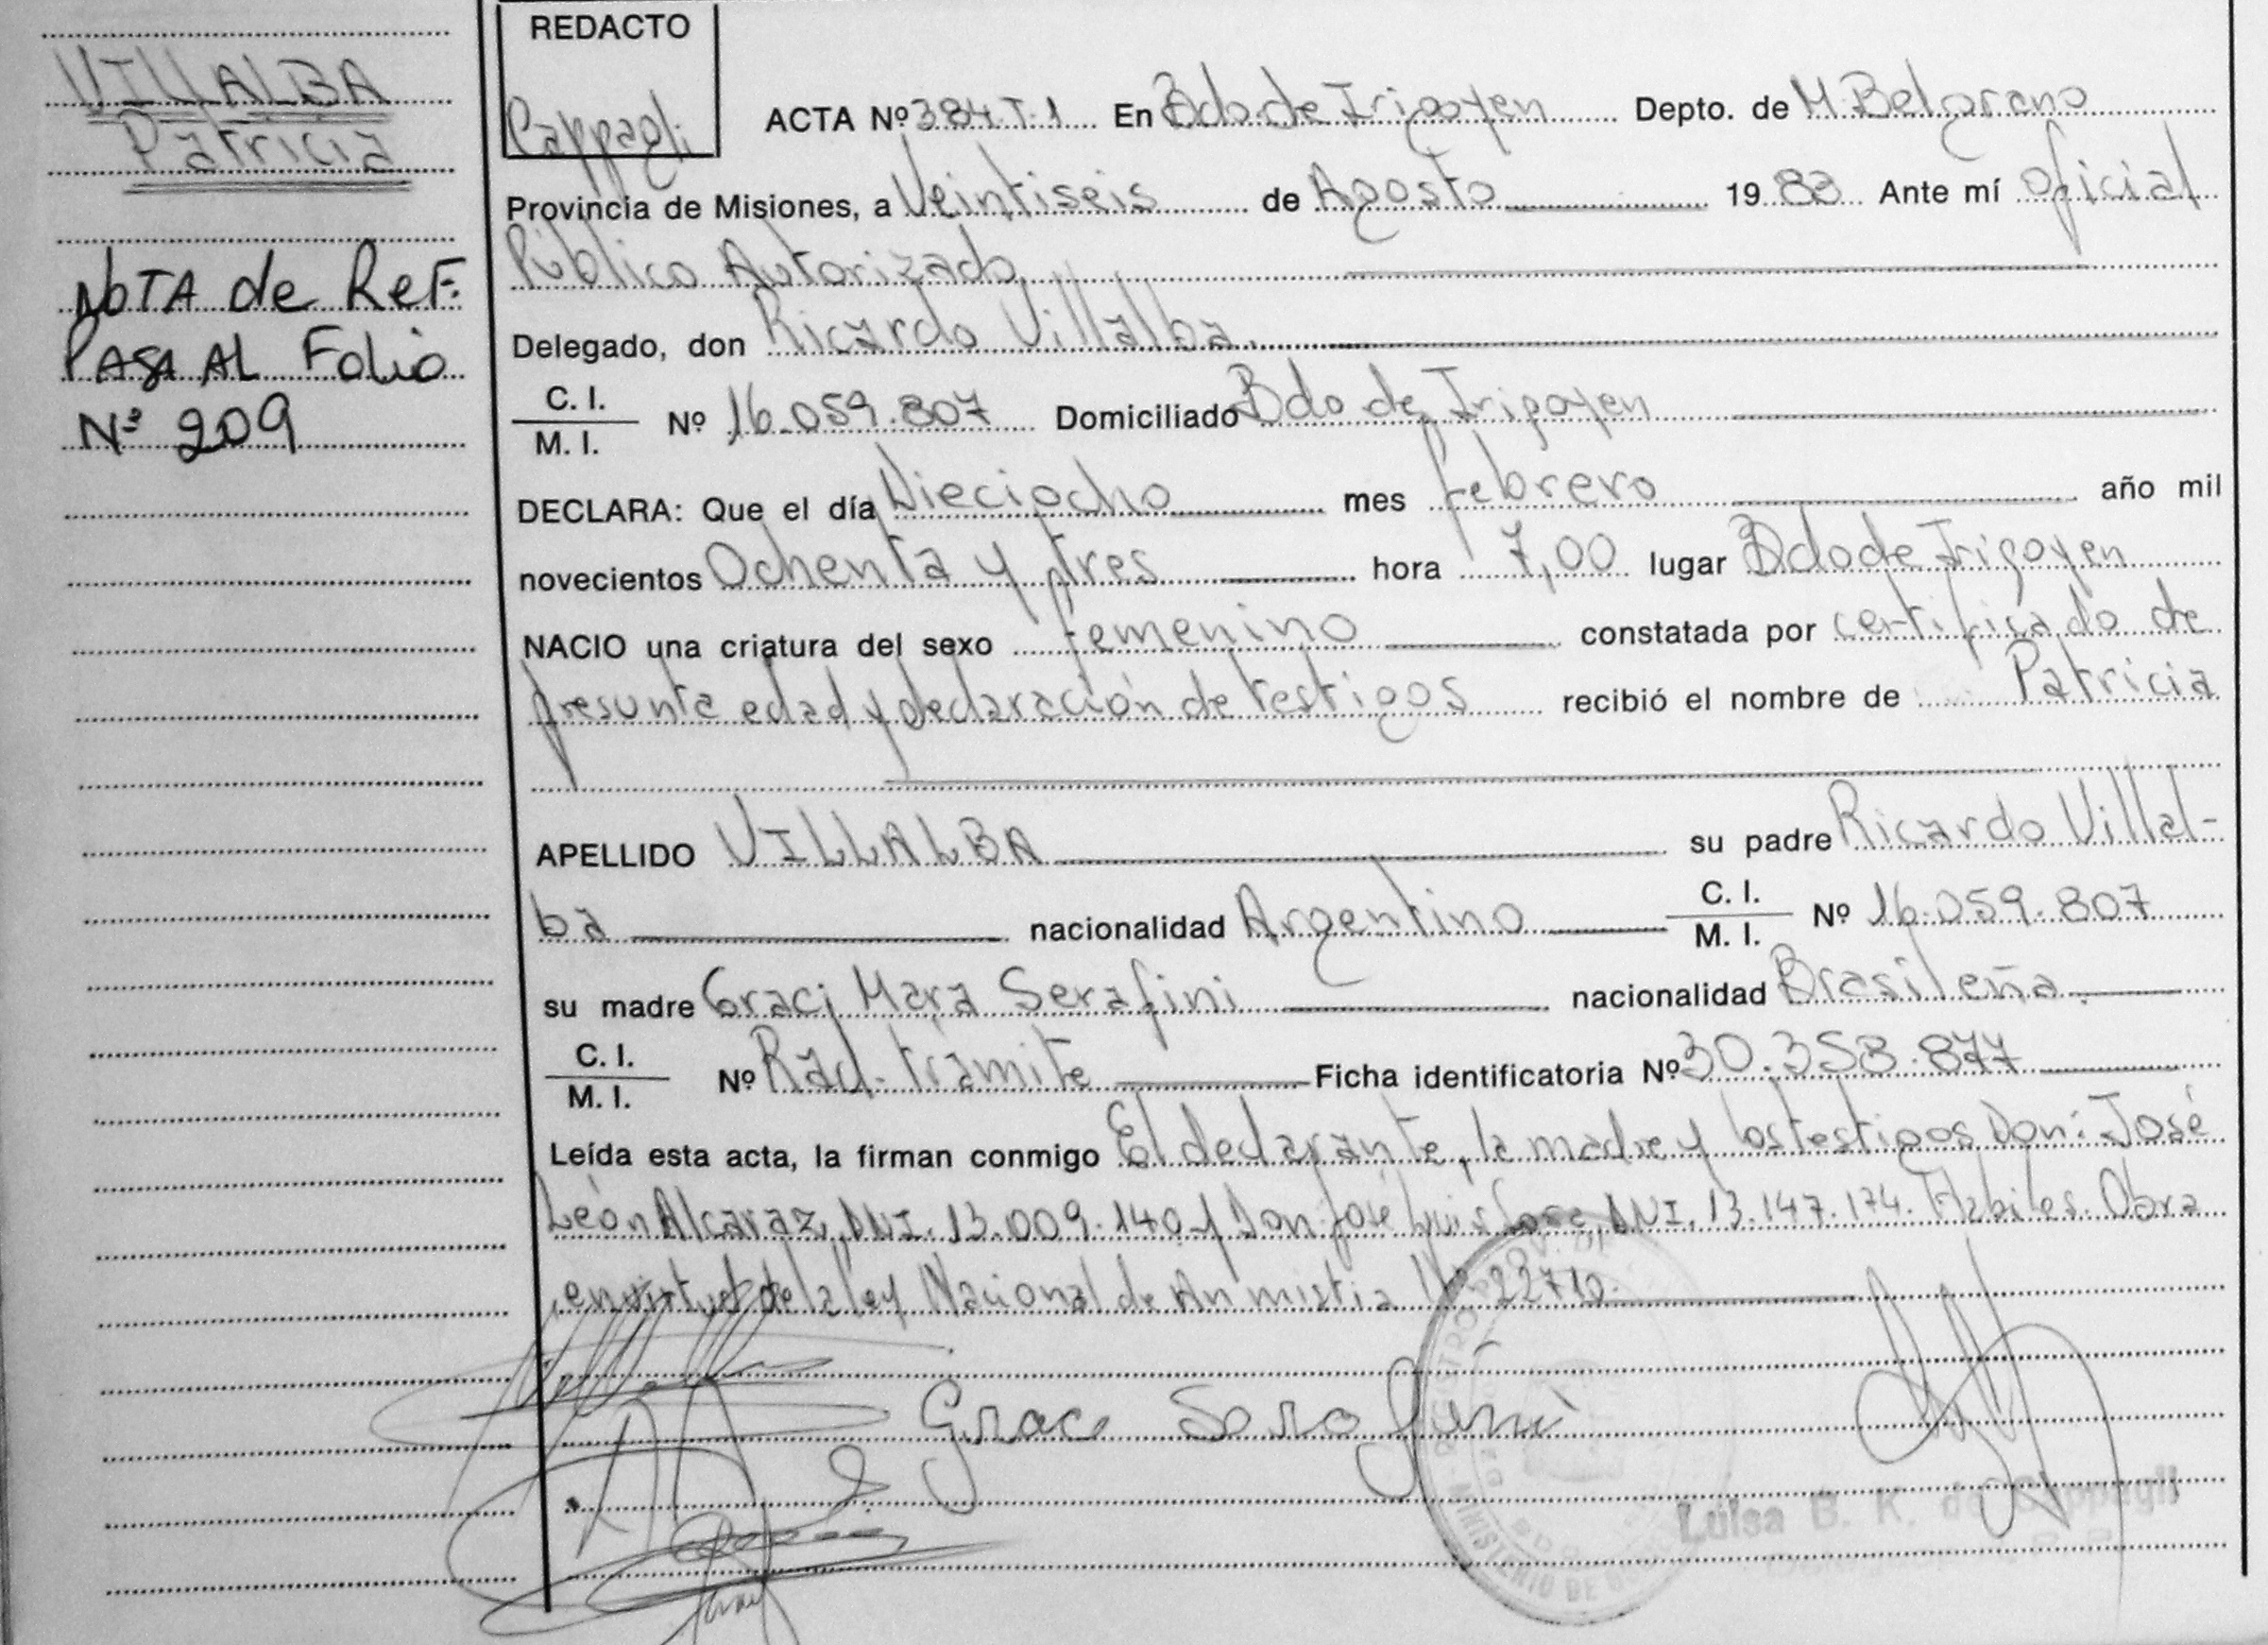 VILLALBA
Patricia
NOTA de REF.
PASA AL Folio
Nº 209
REDACTO
Cappagli
ACTA Nº 384.T.1 En Bdo. de Irigoyen Depto. de M. Belgrano
Provincia de Misiones, a Veintiseis de Agosto 19 83 Ante mí oficial
Público Autorizado
Delegado, don Ricardo Villalba
C. I.
M. I. Nº 16.059.807 Domiciliado Bdo de Irigoyen
DECLARA: Que el día Dieciocho mes febrero año mil
novecientos Ochenta y tres hora 7,00 lugar Bdo de Irigoyen
NACIO una criatura del sexo femenino constatada por certificado de
presunta edad y declaración de testigos recibió el nombre de Patricia
APELLIDO VILLALBA su padre Ricardo Villal-
ba nacionalidad Argentino C. I. M. I. Nº 16.059.807
su madre Graci Mara Serafini nacionalidad Brasileña.
C. I.
M. I. Nº Rad. trámite Ficha identificatoria Nº 30.358.877
Leída esta acta, la firman conmigo El declarante, la madre y los testigos Don: José
León Alcaraz, DNI. 13.009.140 y Don José Luis DNI. 13.147.174. Hábiles. Obra
en virtud de la ley Nacional de Anmistia Nº 22710.
Grace Serafini
Luisa B. K. de Cappagli
MINISTERIO DE